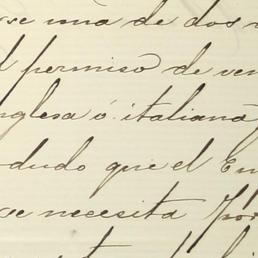 se una de dos
permiso de ven
nglesa ó italiana
dudo que el Em
se necesita por